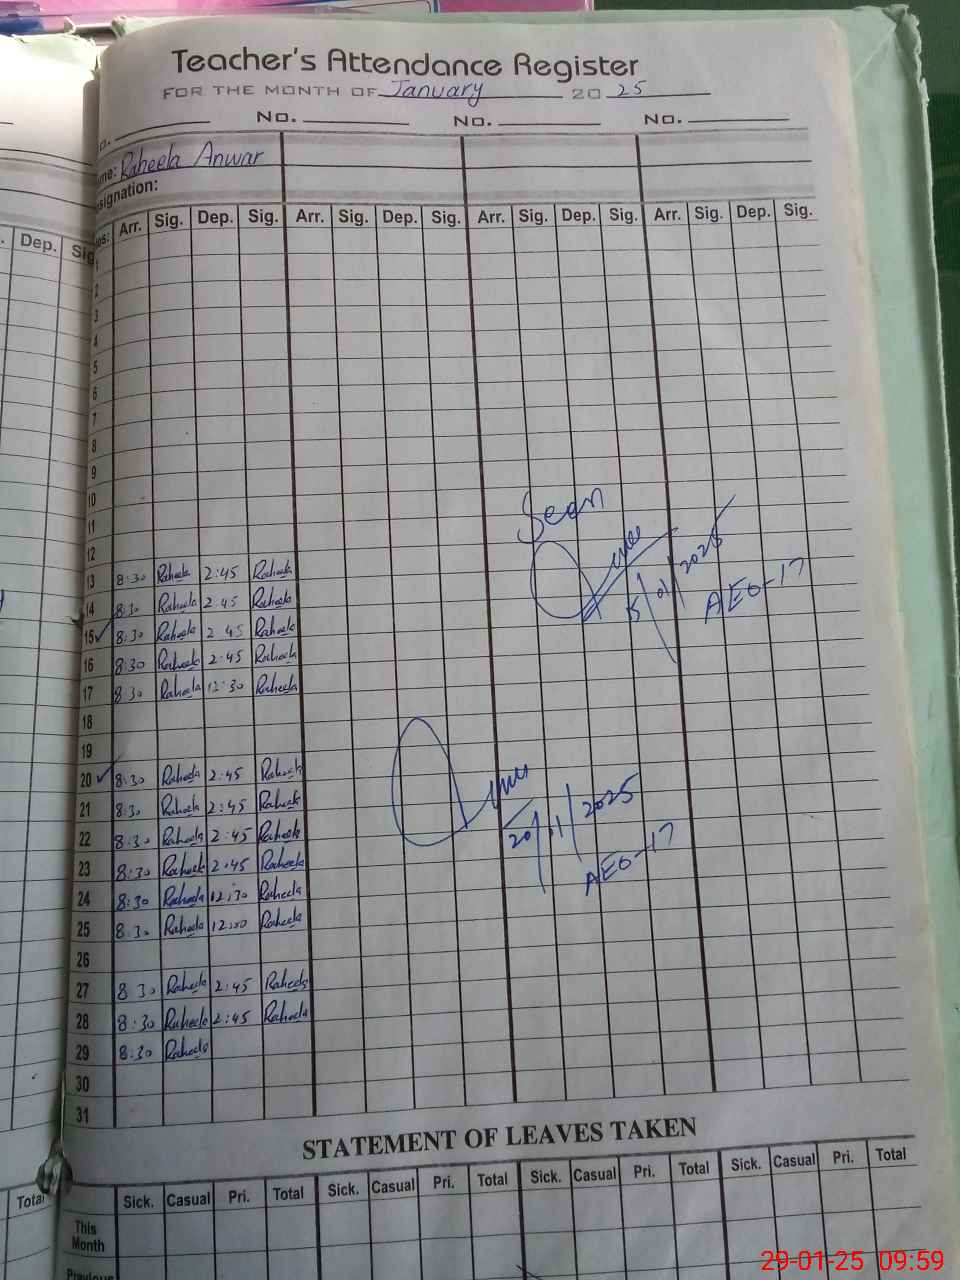 Teacher's Attendance Register
FOR THE MONTH OF January 20 25
No. No. No.
Raheela Anwar
signation:
Dep. Sig
Arr. Sig. Dep. Sig. Arr. Sig. Dep. Sig. Arr. Sig. Dep. Sig. Arr. Sig. Dep. Sig.
1
2
3
4
5
6
7
8
9
10
11
Seen
12
13 8:30 Raheela 2:45 Raheela
14 8:30 Raheela 2:45 Raheela
15/01/2025
AEO-17
15 8:30 Raheela 2:45 Raheela
16 8:30 Raheela 2:45 Raheela
17 8:30 Raheela 12:30 Raheela
18
19
20 8:30 Raheela 2:45 Raheela
21 8:30 Raheela 2:45 Raheela
20/01/2025
22 8:30 Raheela 2:45 Raheela
AEO-17
23 8:30 Raheela 2:45 Raheela
24 8:30 Raheela 12:30 Raheela
25 8:30 Raheela 12:00 Raheela
26
27 8:30 Raheela 2:45 Raheela
28 8:30 Raheela 2:45 Raheela
29 8:30 Raheela
30
31
STATEMENT OF LEAVES TAKEN
Total
Sick. Casual Pri. Total Sick. Casual Pri. Total Sick. Casual Pri. Total Sick. Casual Pri. Total
This
Month
29-01-25 09:59